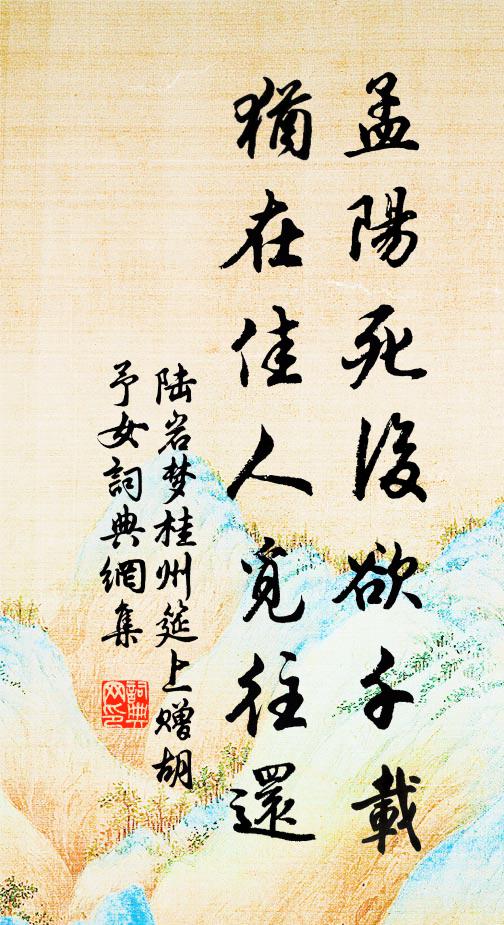 孟陽死後欲千載
猶在佳人覓往還
陆岩梦桂州筵上赠胡
予女詞典網集
詞典
网印